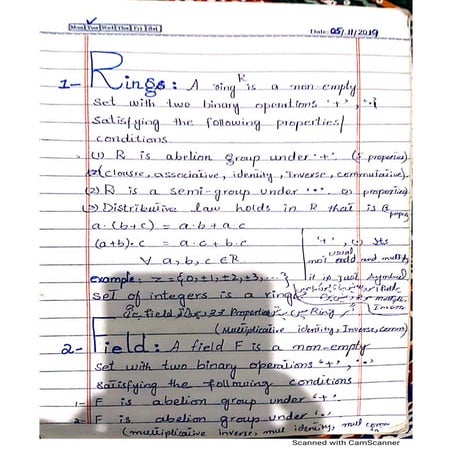 Mon Tue Wed Thu Fri Sat
Date: 05/11/2019
1- Rings: A ring R is a non-empty
set with two binary operations '+', '.'
satisfying the following properties/
conditions.
(1) R is abelion group under '+'. (5 properties)
(clousre, associative, idenity, Inverse, commutative).
(2) R is a semi-group under '.' properties)
(3) Distributive law holds in R that is
a.(b+c) = a.b + a.c
(a+b).c = a.c + b.c
∀ a, b, c ∈ R
'+', (.) Its
not usual add and multiply
it is just symbol
example: Z = {0, ±1, ±2, ±3, ...}
set of integers is a ring
field Properties Ring
(Multiplicative idenity, Inverse, comm)
2- Field: A field F is a non-empty
set with two binary operations '+', '.'
satisfying the following conditions
1- F is abelion group under '+'.
2- F is abelion group under '.'
(multiplicative inverse, mul idenity, mul comm
Scanned with CamScanner